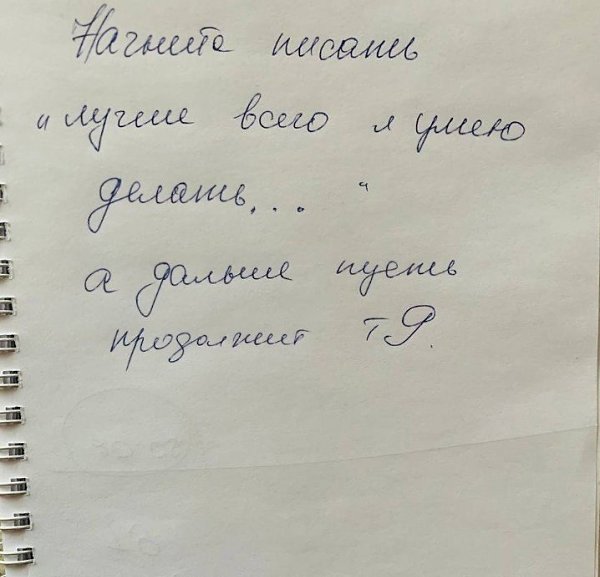 Начните писать
"лучше всего я умею
делать... "
а дальше пусть
продолжит тЯ.